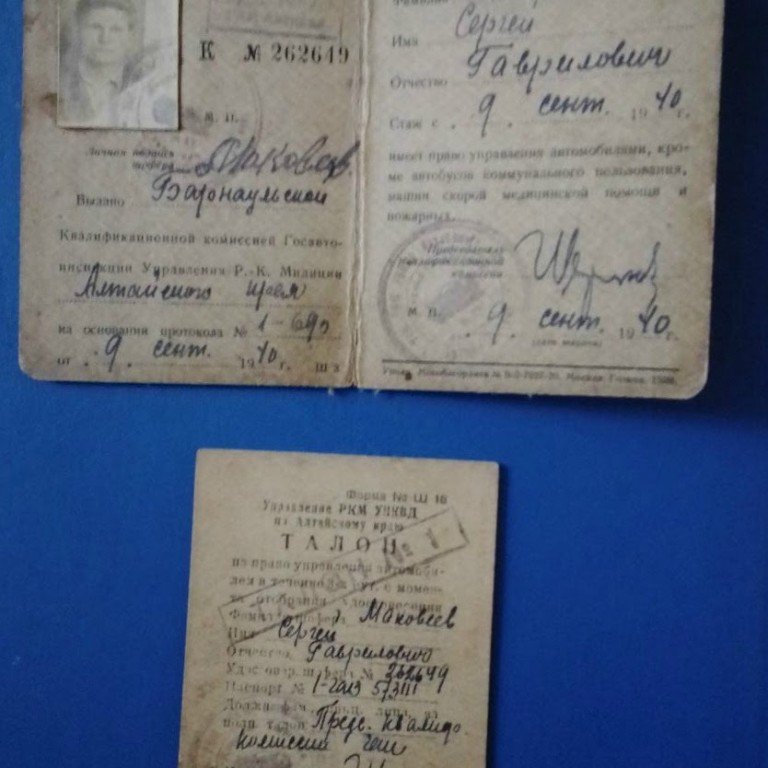 К № 262649
М. П.
Личная подпись
Маковеев
Выдано Барнаульской
Квалификационной комиссией Госавто-
инспекции Управления Р.-К. Милиции
Алтайского края
на основании протокола № 1-690
от 9 сент. 1940 г. Ш 3
Фамилия
Имя Сергей
Отчество Гаврилович
Стаж с 9 сент. 1940 г.
имеет право управления автомобилями, кро-
ме автобусов коммунального пользования,
машин скорой медицинской помощи и
пожарных.
Председатель
квалификационной
комиссии
М. П. 9 сент. 1940 г.
Форма № Ш 18
Управление РКМ УНКВД
по Алтайскому краю
ТАЛОН
на право управления автомоби-
лем в течение сут. с момен-
та отобрания удостоверения
Фамилия шофера Маковеев
Имя Сергей
Отчество Гаврилович
Удостовер. шофера № 262649
Паспорт № 573111
Должн.
талон Пред. Квалифо
комиссии